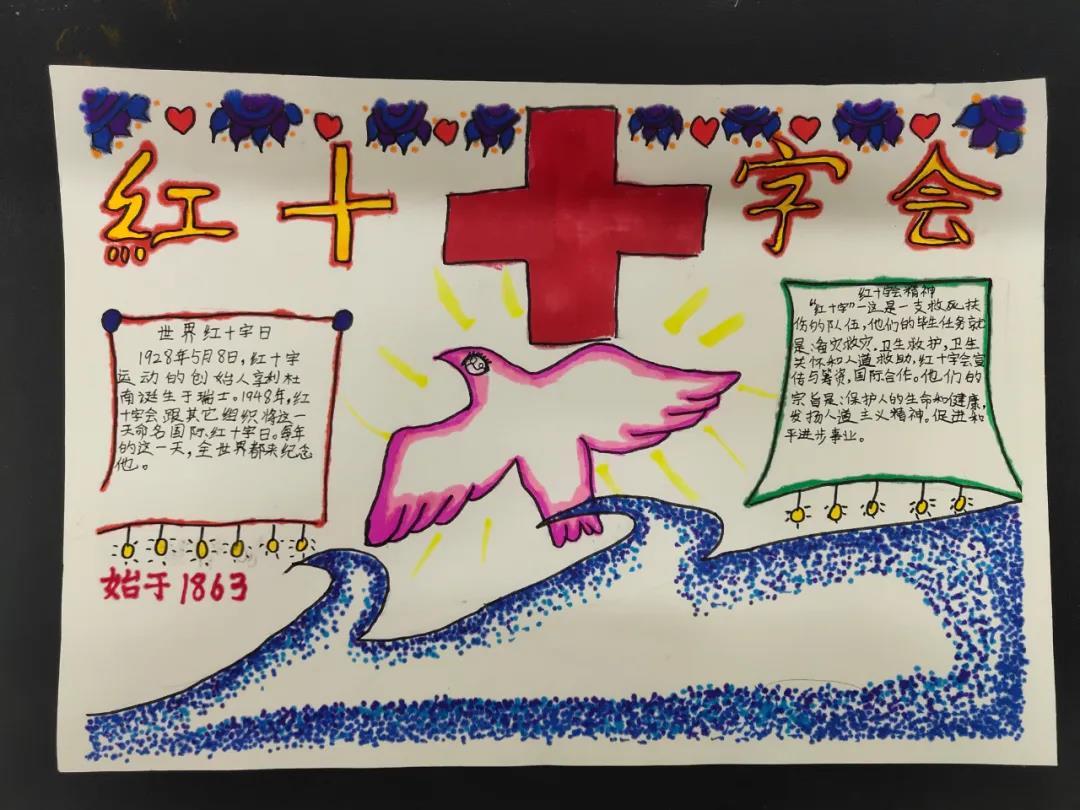 紅十字会
世界红十字日
1928年5月8日,红十字
运动的创始人享利杜
南诞生于瑞士。1948年,红
十字会跟其它组织将这一
天命名国际红十字日。每年
的这一天,全世界都来纪念
他。
始于1863
红十字会精神
“红十字”一这是一支救死扶
伤的队伍,他们的毕生任务就
是:备灾救灾.卫生救护,卫生
关怀和人道救助,红十字会宣
传与筹资,国际合作。他们的
宗旨是:保护人的生命和健康,
发扬人道主义精神。促进和
平进步事业。